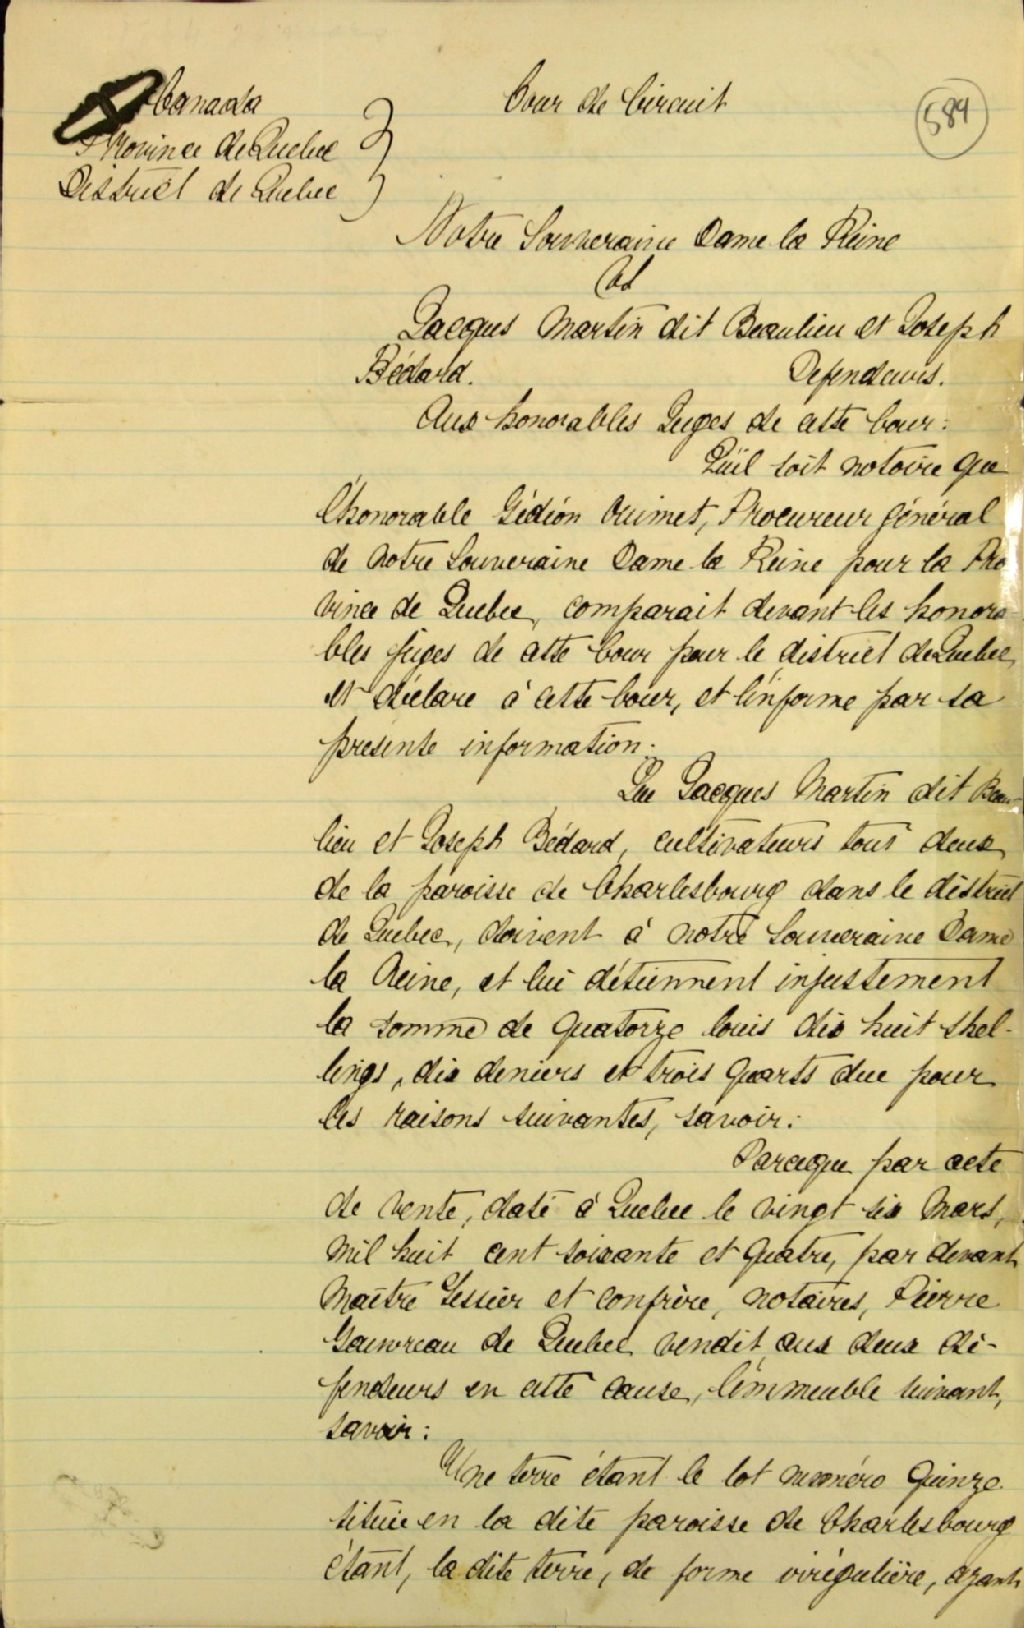 Canada
Province de Quebec
District de Quebec
Cour de Circuit
589
Notre Souveraine Dame la Reine
vs
Jacques Martin dit Beaulieu et Joseph
Bédard. Defendeurs.
Aux honorables Juges de cette Cour:
Qu'il soit notoire que
l'honorable Gédéon Ouimet, Procureur général
de notre Souveraine Dame la Reine pour la Pro
vince de Quebec, comparait devant les honora
bles juges de cette Cour pour le district de Quebec
et déclare à cette Cour, et l'informe par sa
presente information.
Que Jacques Martin dit Beau-
lieu et Joseph Bédard, cultivateurs tous deux
de la paroisse de Charlesbourg dans le district
de Quebec, doivent à notre Souveraine Dame
la Reine, et lui détiennent injustement
la somme de quatorze louis dix huit shel-
lings, dix deniers et trois quarts due pour
les raisons suivantes, savoir:
Parceque par acte
de vente, daté à Quebec le vingt six Mars,
mil huit cent soixante et quatre, par devant
Maître Tessier et confrère, notaires, Pierre
Gauvreau de Quebec vendit aux deux dé-
fendeurs en cette cause, l'immeuble suivant,
savoir:
Une terre étant le lot numéro quinze
située en la dite paroisse de Charlesbourg
étant, la dite terre, de forme irrégulière, ayant